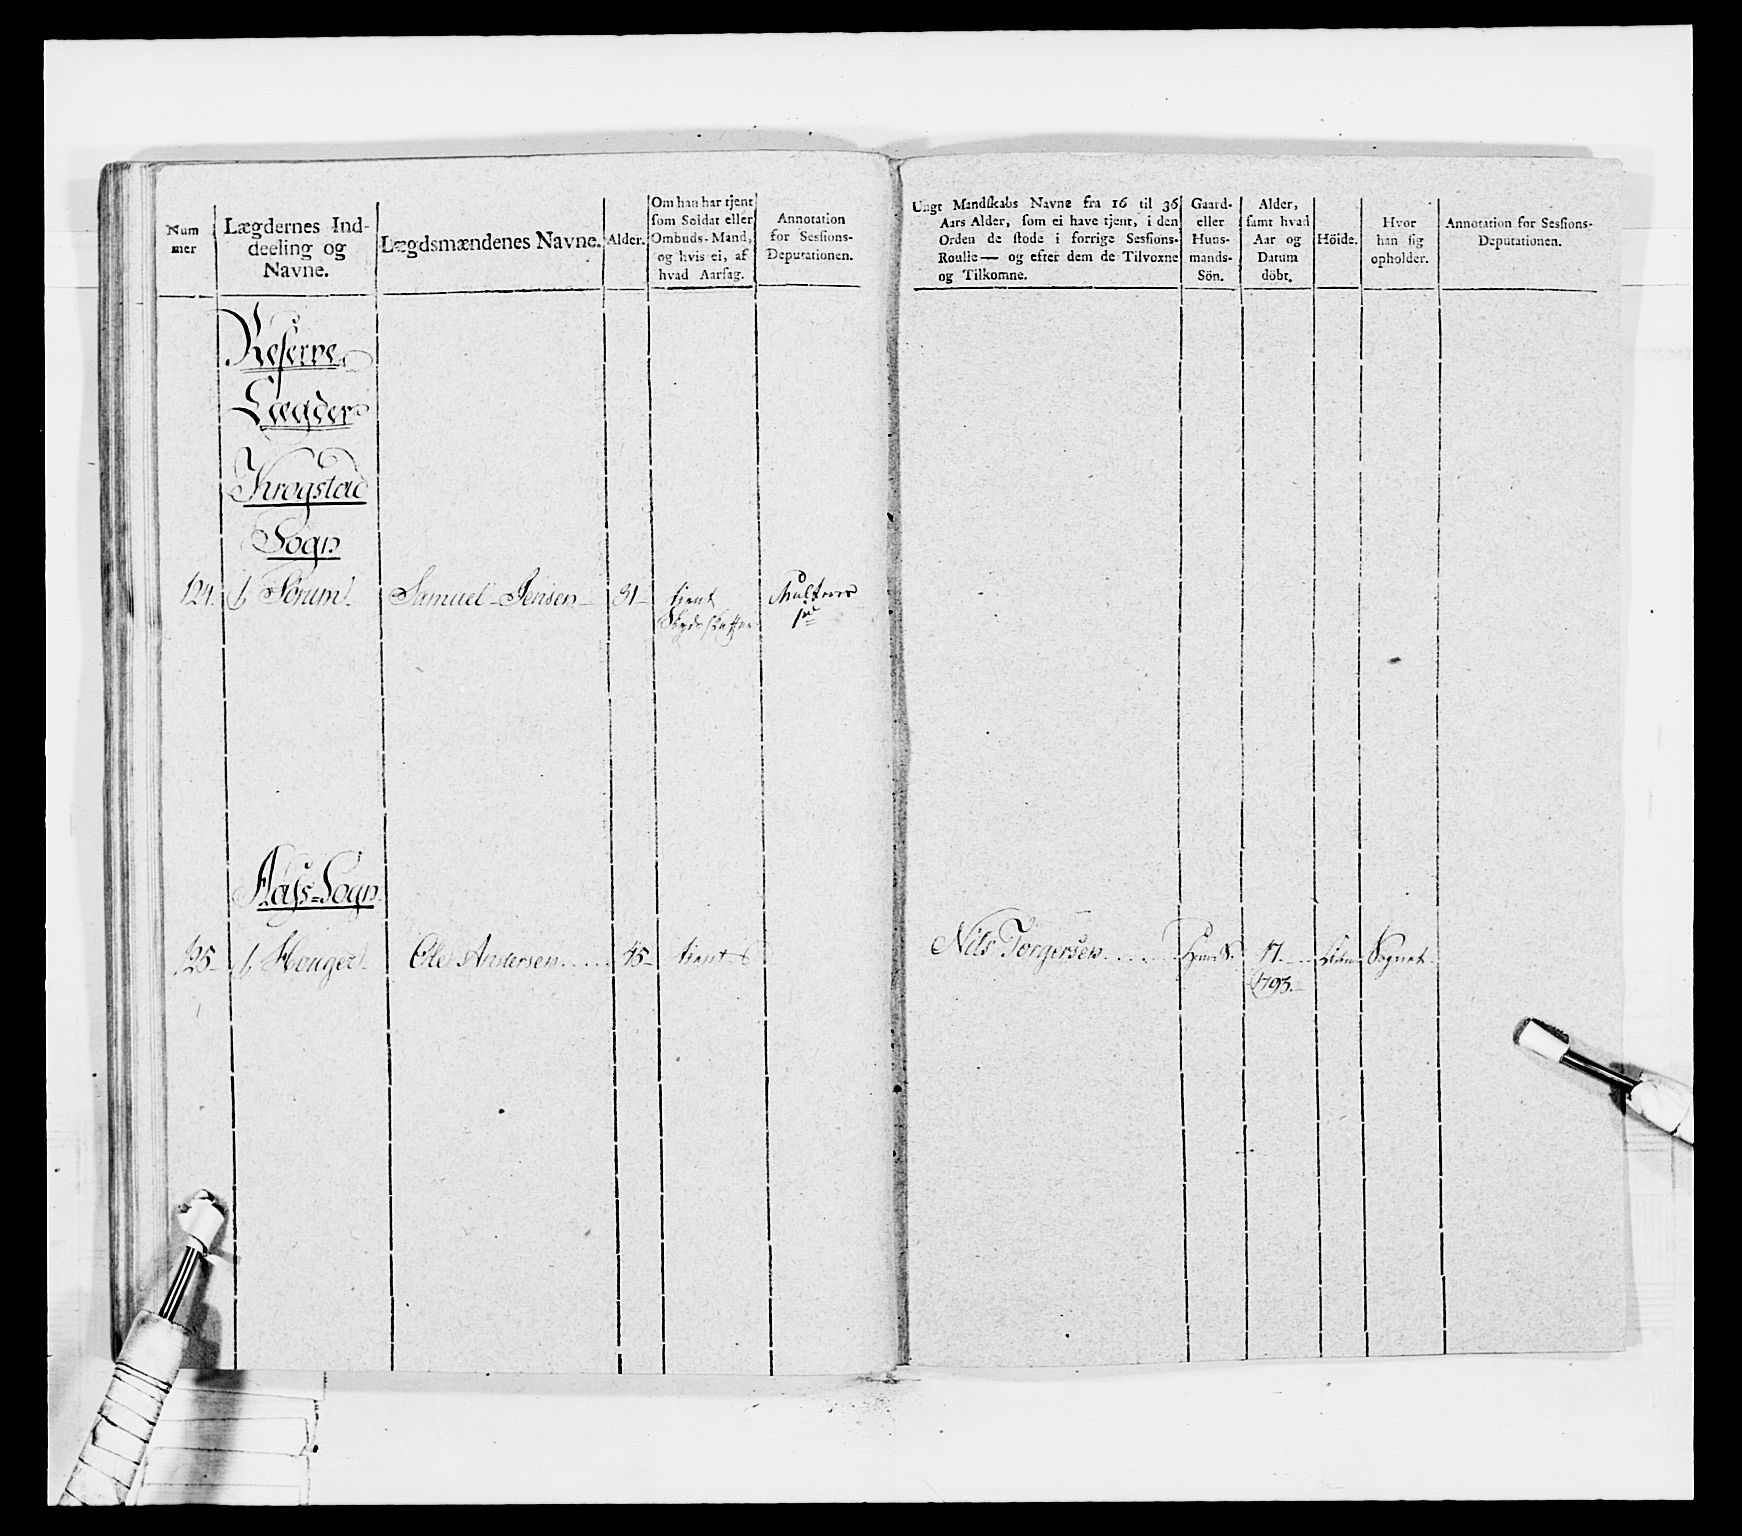 Num
mer
Lægdernes Ind-
deeling og
Navne.
Lægdsmændenes Navne.
Alder.
Om han har tjent
som Soldat eller
Ombuds-Mand,
og hvis ei, af
hvad Aarsag.
Annotation
for Sessions-
Deputationen.
Ungt Mandskabs Navne fra 16 til 36
Aars Alder, som ei have tjent, i den
Orden de stode i forrige Sessions-
Roulle — og efter dem de Tilvoxne
og Tilkomne.
Gaard-
eller
Huus-
mands-
Sön.
Alder,
samt hvad
Aar og
Datum
döbt.
Höide.
Hvor
han sig
opholder.
Annotation for Sessions-
Deputationen.
Reserve
Lægder
Krogstad
Sogn
124. 1, Sörum Samuel Jensen 31 tient
Aas=Sogn
125 1, Houger Ole Andersen 45 tient Nils Torgersen HuusS. 17 Liden Sognet
1793.